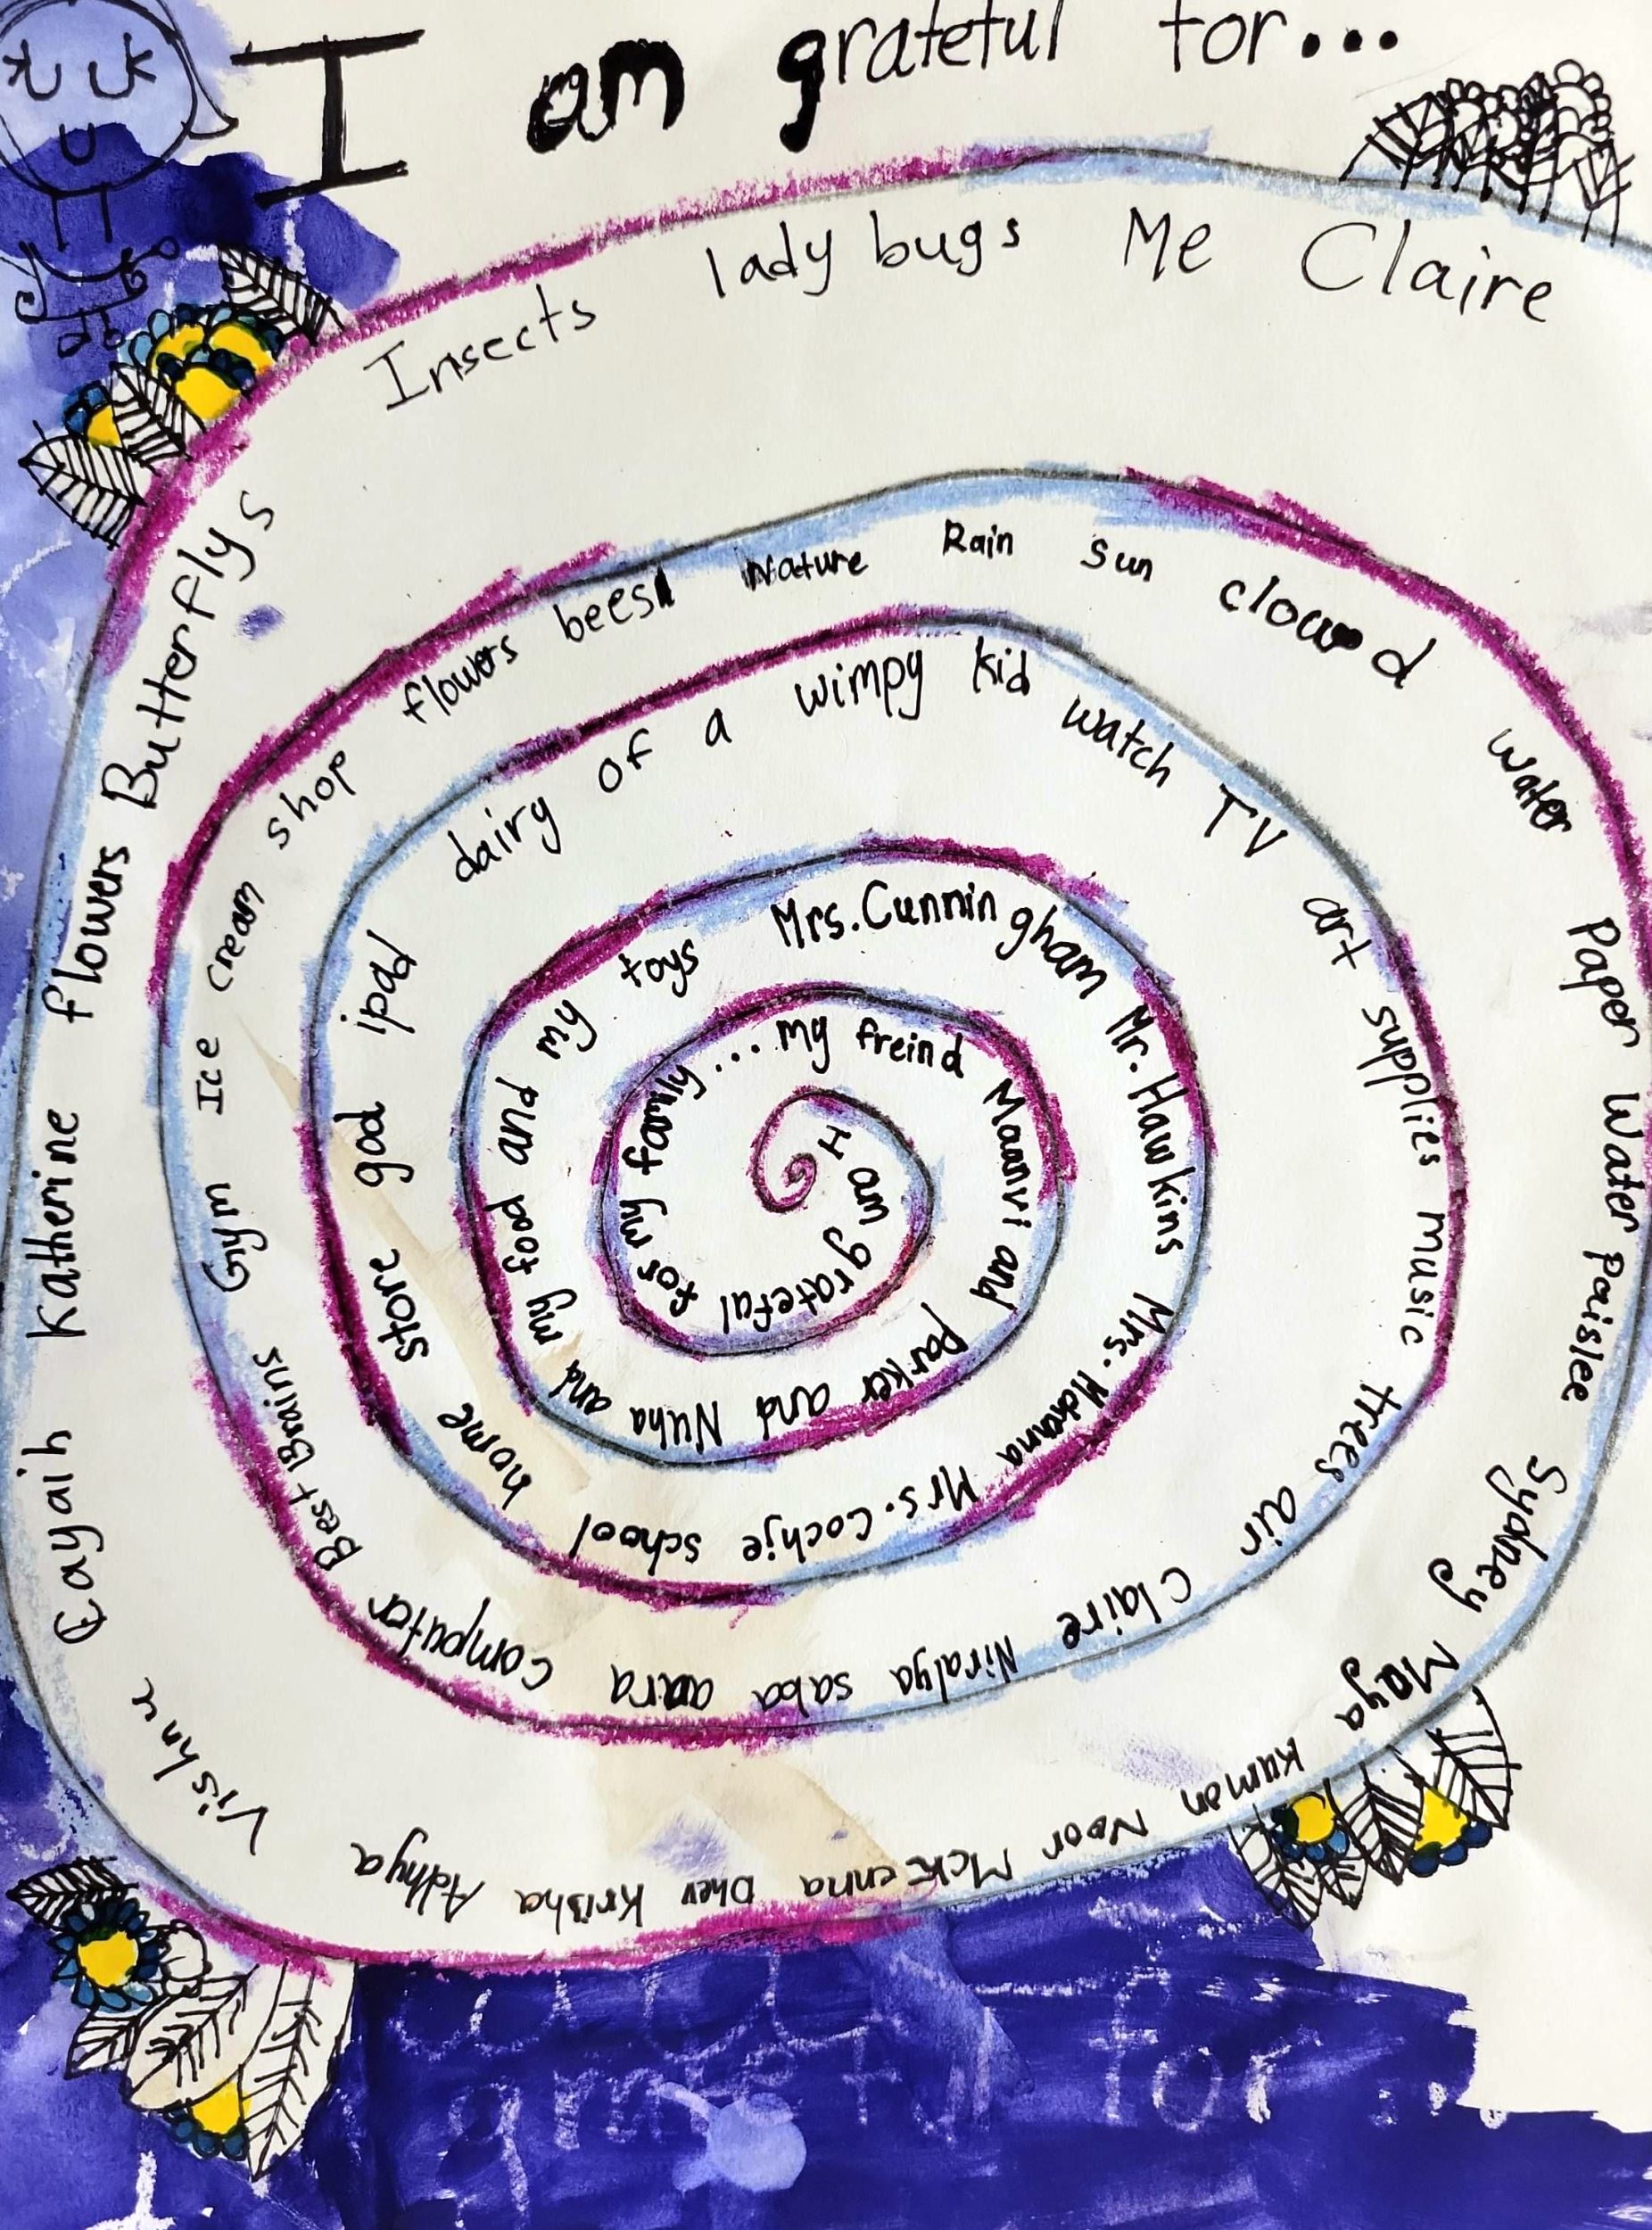 I am grateful for...
I am grateful for my family... my freind Maanvi and parker and Nuha and my food and my toys Mrs. Cunningham Mr. Hawkins Mrs. Mckenna Mrs. Cochje school home store god ipad dairy of a wimpy kid watch TV art supplies music trees air Claire Niralya saba aaira computer Best Brains Gym Ice cream shop flowers bees Nature Rain Sun cloud water Paper Water Paislee Sydney Maya Kuman Noor McKenna Dhev Krisha Adhya Vishnu Eayaih Katherine flowers Butterflys Insects lady bugs Me Claire
grateful for